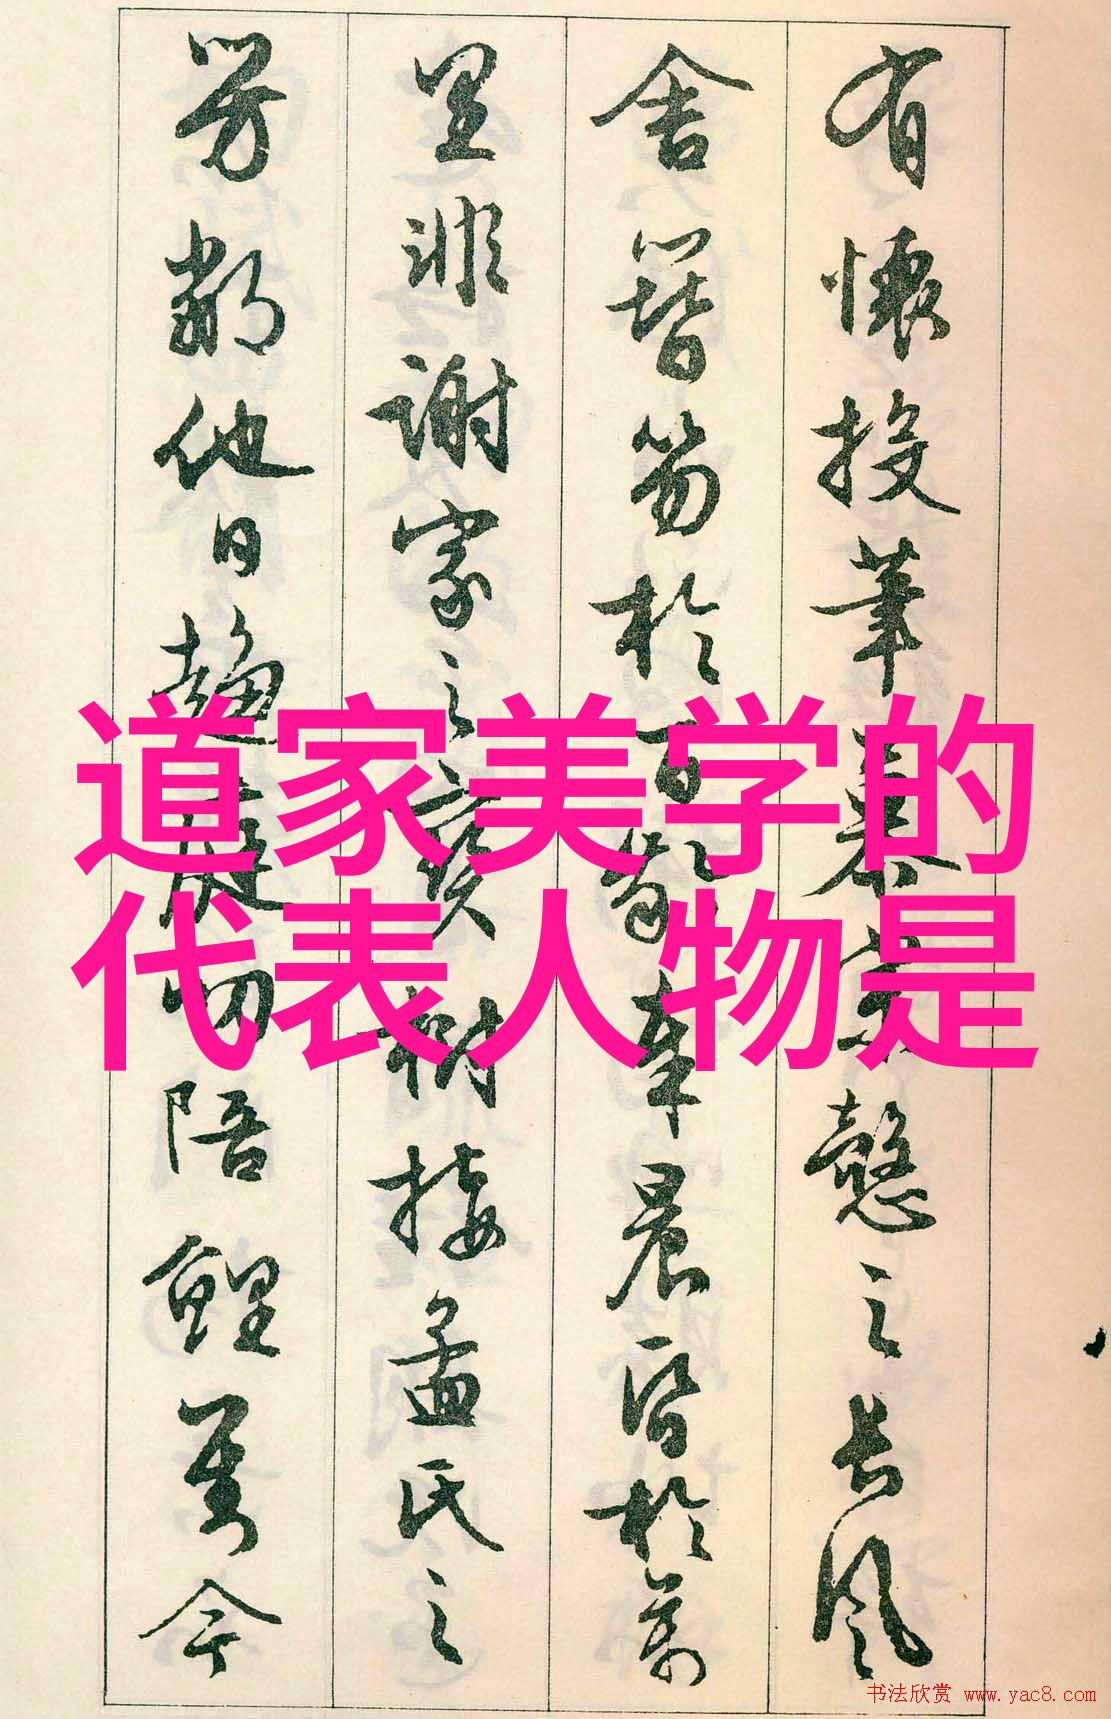 有懷投筆慕宗愨之長風
舍簪笏於百齡奉晨昏於萬
里非謝家之寶樹接孟氏之
芳鄰他日趨庭叨陪鯉對今
道家美学的
代表人物是
书法欣赏 www.yac8.com